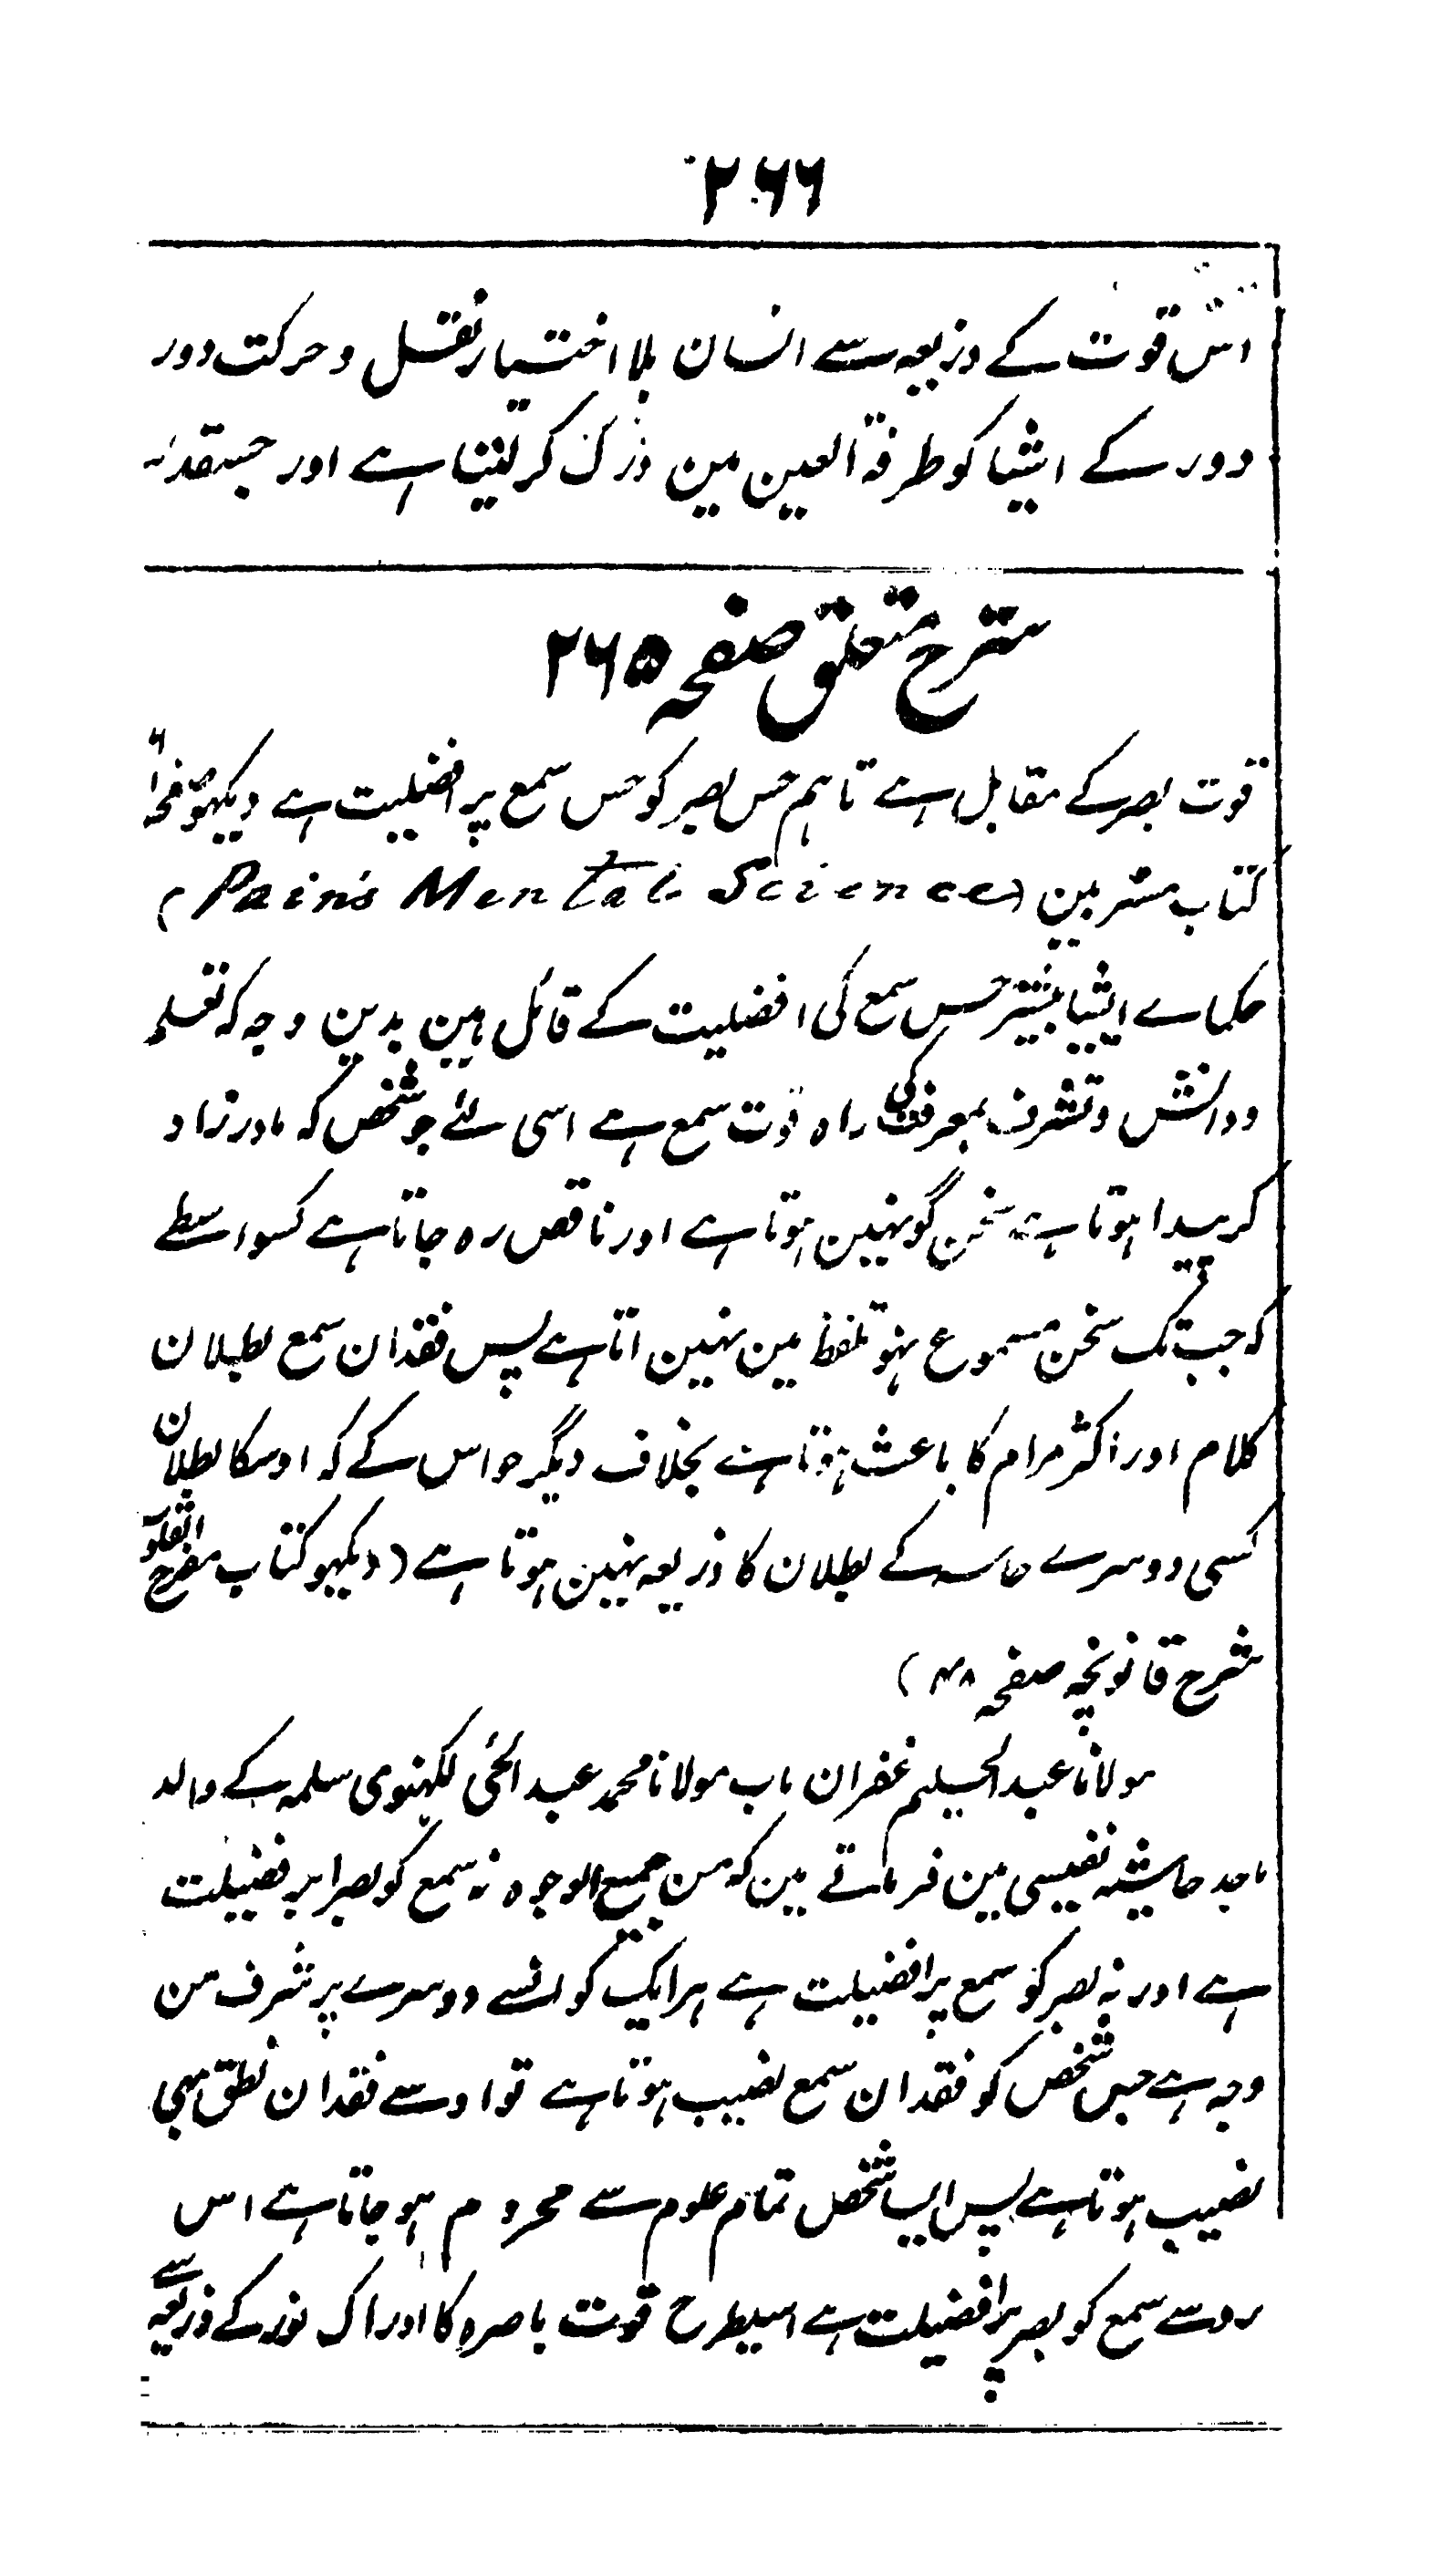 ۲۶۶
اس قوت کے ذریعہ سے انسان بلا اختیار نقل و حرکت دور
دور کے اشیا کو طرفۃ العین مین درک کر لیتا ہے اور جسقدر
شرح متعلق صفحہ ۲۶۵
قوت بصر کے مقابل ہے تاہم حس بصر کو حس سمع پر افضلیت ہے دیکھو صفحہ
کتاب مسٹر بین (Pain's Mental Science)
حکماے ایشیا بیشتر حس سمع کی افضلیت کے قائل ہین بدین وجہ کہ تعلم
و دانش و تشرف بمعرفت کی راہ قوت سمع ہے اسی لئے جو شخص کہ مادر زاد
کر پیدا ہوتا ہے سخن گو نہین ہوتا ہے اور ناقص رہ جاتا ہے کسواسطے
کہ جب تک سخن مسموع نہو تلفظ مین نہین اتا ہے پس فقدان سمع بطلان
کلام اور اکثر مرام کا باعث ہوتا ہے بخلاف دیگر حواس کے کہ اوسکا بطلان
کسی دوسرے حاسہ کے بطلان کا ذریعہ نہین ہوتا ہے (دیکھو کتاب مفرح القلوب
شرح قانونچہ صفحہ ۴۸)
مولانا عبد الحلیم غفران باب مولانا محمد عبد الحئی لکھنوی سلمہ کے والد
ماجد حاشیہ نفیسی مین فرماتے ہین کہ من جمیع الوجوہ نہ سمع کو بصر پر فضیلت
ہے اور نہ بصر کو سمع پر افضیلت ہے ہر ایک کو انسے دوسرے پر شرف من
وجہ ہے جس شخص کو فقدان سمع نصیب ہوتا ہے تو اوسے فقدان نطق بھی
نصیب ہوتا ہے پس ایسا شخص تمام علوم سے محروم ہو جاتا ہے اس
رو سے سمع کو بصر پر افضیلت ہے اسیطرح قوت باصرہ کا ادراک نور کے ذریعہ سے